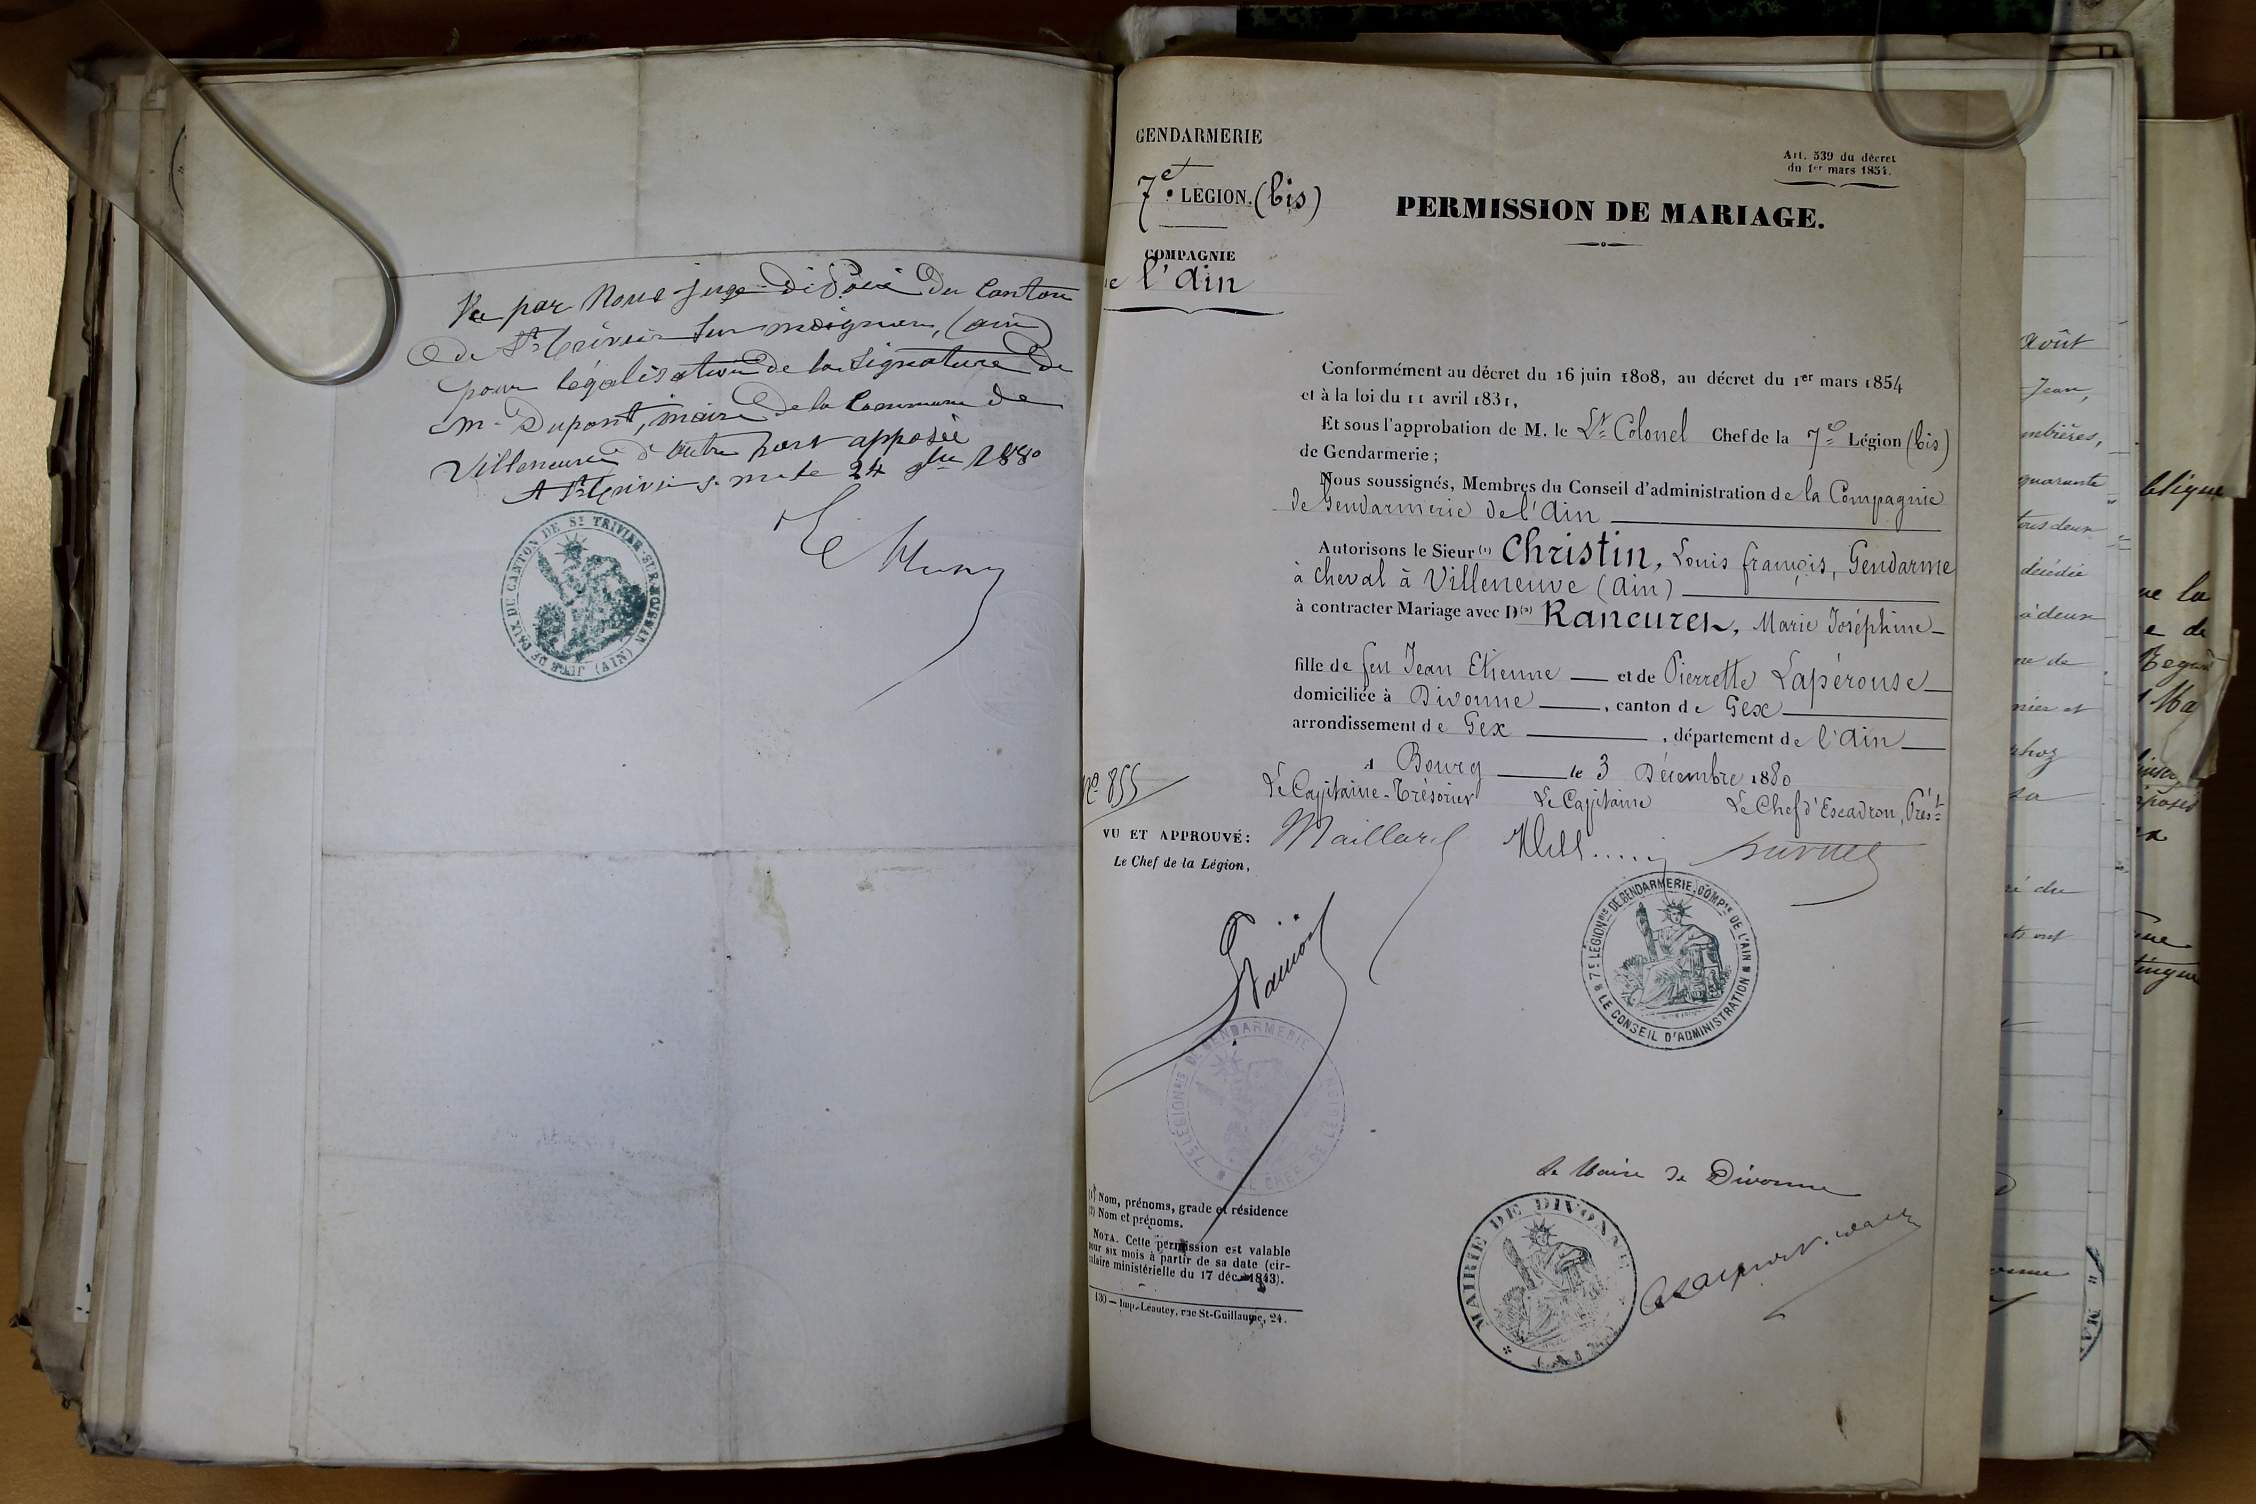 Vu par Nous juge de Paix du Canton
de St Trivier sur moignans, (ain)
pour légalisation de la signature de
M. Dupont, maire de la Commune de
Villeneuve d'autre part apposée
A St Trivier s. m. le 24 9bre 1880
JUSTICE DE PAIX DU CANTON DE ST TRIVIER-SUR-MOIGNANS (AIN)
GENDARMERIE
7e LÉGION. (bis)
COMPAGNIE
de l'Ain
Art. 539 du décret
du 1er mars 1854.
PERMISSION DE MARIAGE.
Conformément au décret du 16 juin 1808, au décret du 1er mars 1854
et à la loi du 11 avril 1831,
Et sous l'approbation de M. le Lt Colonel Chef de la 7e Légion (bis)
de Gendarmerie ;
Nous soussignés, Membres du Conseil d'administration de la Compagnie
de Gendarmerie de l'Ain
Autorisons le Sieur (1) Christin, Louis françois, Gendarme
à cheval à Villeneuve (Ain)
à contracter Mariage avec D (2) Rancurel, Marie Joséphine
fille de feu Jean Etienne et de Pierrette Lapérouse
domiciliée à Divonne, canton de Gex
arrondissement de Gex, département de l'Ain
A Bourg le 3 Décembre 1880
Le Capitaine-Trésorier Le Capitaine Le Chef d'Escadron, Prést
No 855
Maillard
VU ET APPROUVÉ :
Le Chef de la Légion,
7E LÉGION BIS DE GENDARMERIE, COMPIE DE L'AIN
LE CONSEIL D'ADMINISTRATION
7E LÉGION BIS DE GENDARMERIE
LE CHEF DE LÉGION
Le Maire de Divonne
MAIRIE DE DIVONNE
(AIN)
(1) Nom, prénoms, grade et résidence
(2) Nom et prénoms.
NOTA. Cette permission est valable
pour six mois à partir de sa date (cir-
culaire ministérielle du 17 déc. 1843).
130 — Imp. Léautey, rue St-Guillaume, 24.
août
Jean,
quarante
tous deux
décédée
à deux